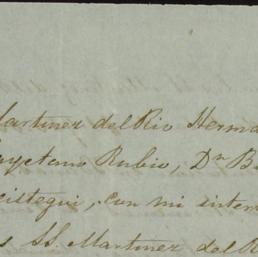 Martinez del Rio Herma
ayetano Rubio, Dn B
istegui, con mi inter
s SS. Martinez del R